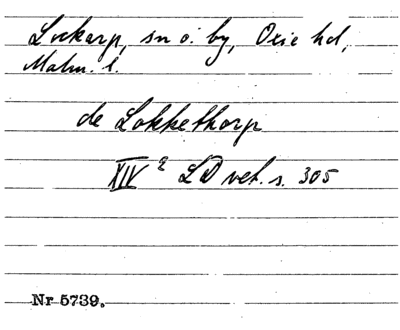 Lockarp, sn o. by, Oxie hd,
Malm. l.
de Lokkethorp
XIV 2 LD vet. s. 305
Nr 5739.